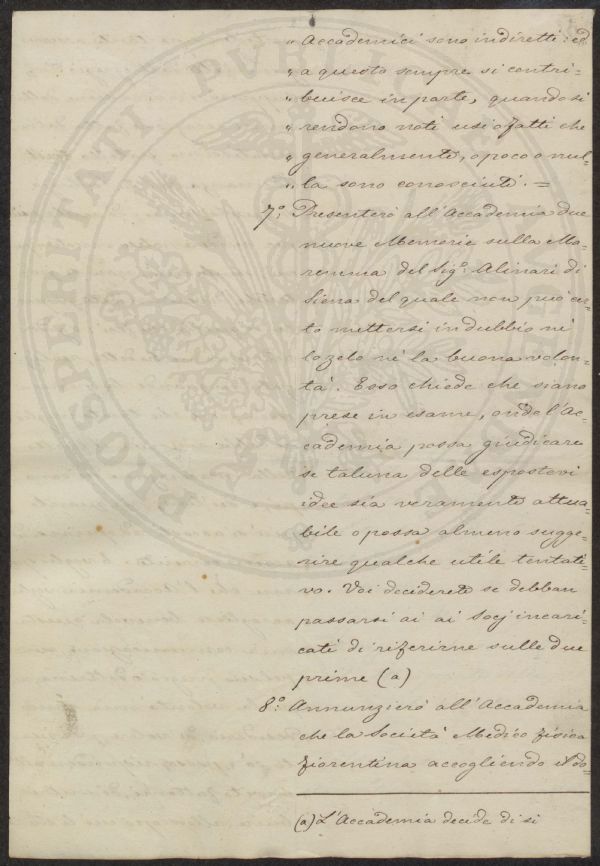 " Accademici sono indiretti: ed
" a questo sempre si contri=
" buisce in parte, quando si
" rendono noti usi o fatti che
" generalmente, o poco o nul=
" la sono conosciuti. =
7.° Presenterò all'Accademia due
nuove Memorie sulla Ma=
remma del Sig.° Alinari di
Siena del quale non può cer=
to mettersi in dubbio nè
lo zelo nè la buona volon=
tà. Esso chiede che siano
prese in esame, onde l'Ac=
cademia possa giudicare
se taluna delle espostevi
idee sia veramente attua=
bile o possa almeno sugge=
rire qualche utile tentati=
vo. Voi deciderete se debban
passarsi ai ai Socj incari=
cati di riferirne sulle due
prime (a)
8.° Annunzierò all'Accademia
che la Società Medico fisica
fiorentina accogliendo il do=
(a) L'Accademia decide di si
PROSPERITATI PUBLICAE AUGENDAE